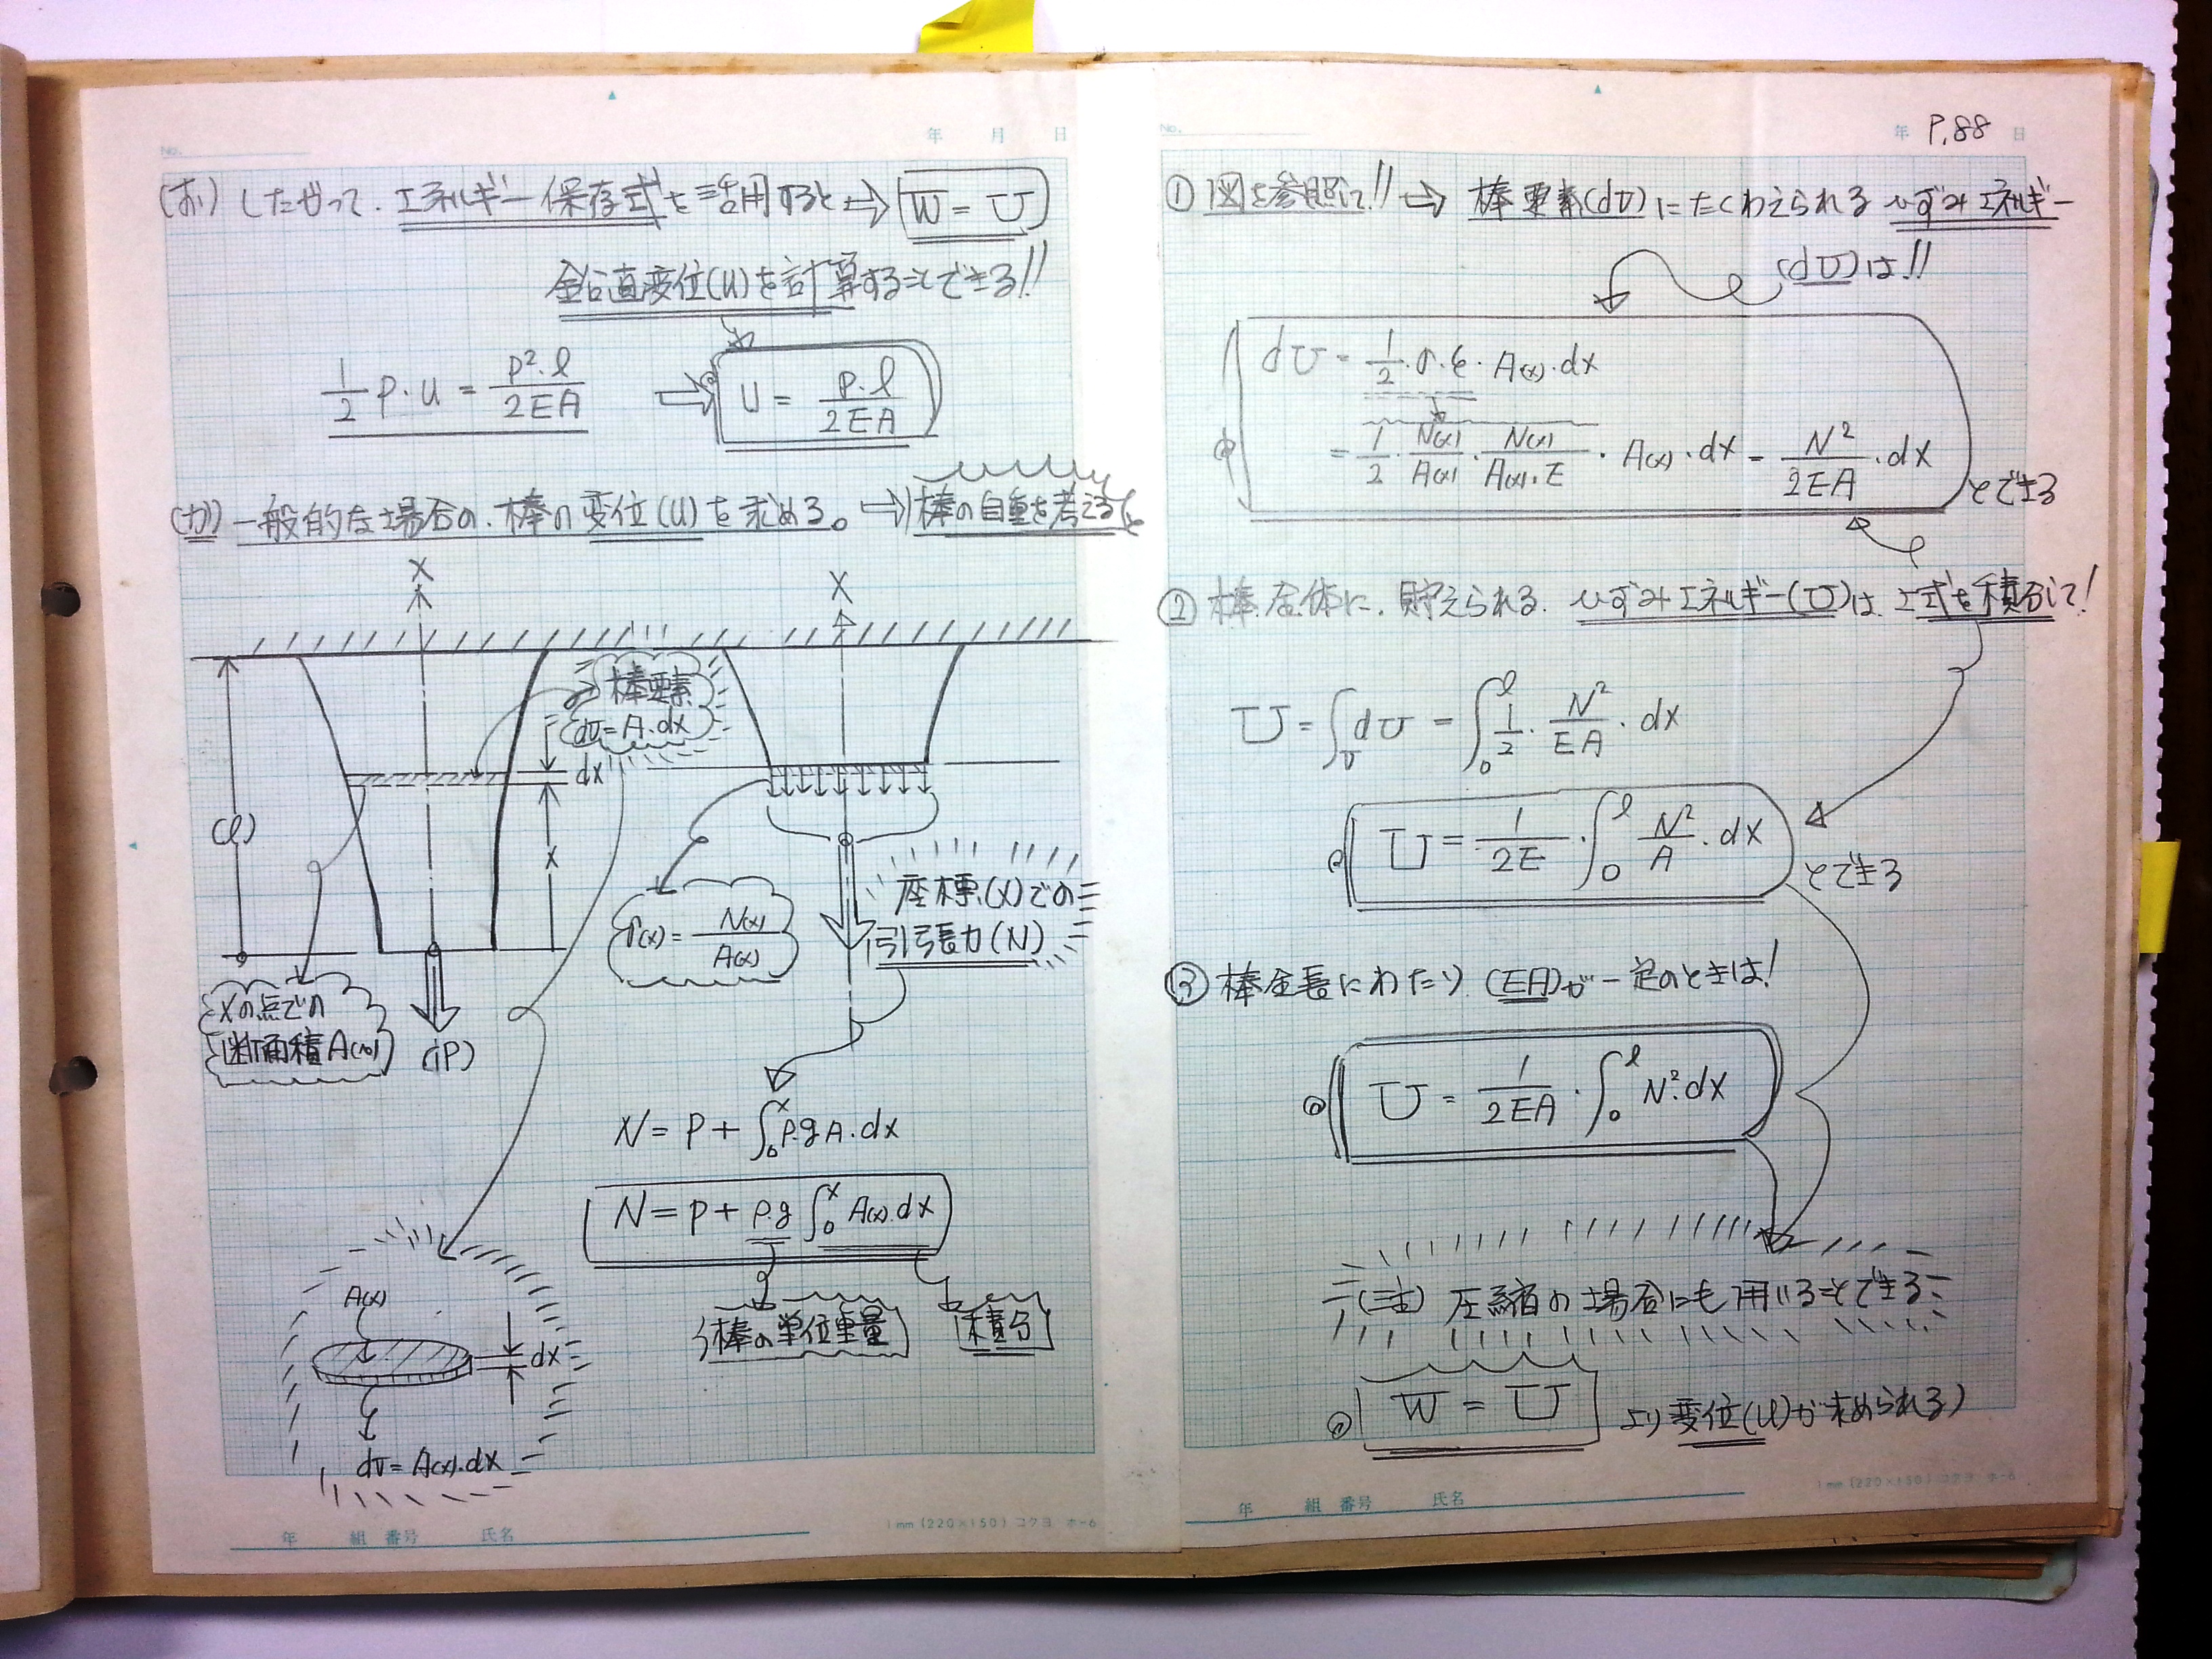 No.
年 月 日
(お) したがって、エネルギー保存式を活用すると ⇒ W = U
鉛直変位(u)を計算することできる!!
1/2 P・u = P²・l / 2EA ⇒ U = P・l / 2EA
(カ) 一般的な場合の、棒の変位(u)を求める。 ⇒ 棒の自重を考えると
X
X
棒要素
dv = A・dx
dx
(l)
x
σ(x) = N(x) / A(x)
座標(x)での
引張力(N)
xの点での
断面積A(x)
(P)
N = P + ∫₀ˣ ρ・g A・dx
N = P + ρ・g ∫₀ˣ A(x)・dx
棒の単位重量
積分
A(x)
dx
dv = A(x)・dx
年 組 番号 氏名
1mm (220×150) コクヨ ホ-6
No.
年 P.88 日
① 図を参照して!! ⇒ 棒要素(dv)にたくわえられるひずみエネルギー
(dU)は!!
dU = 1/2・σ・ε・A(x)・dx
= 1/2・N(x)/A(x)・N(x)/A(x)・E・A(x)・dx = N²/2EA・dx
とできる
② 棒全体に、貯えられる、ひずみエネルギー(U)は、上式を積分して!
U = ∫ᵥ dU = ∫₀ˡ 1/2・N²/EA・dx
U = 1/2E・∫₀ˡ N²/A・dx
とできる
③ 棒全長にわたり (EA)が一定のときは!
U = 1/2EA・∫₀ˡ N²・dx
(注) 圧縮の場合にも用いることできる
W = U より変位(u)が求められる)
年 組 番号 氏名
1mm (220×150) コクヨ ホ-6